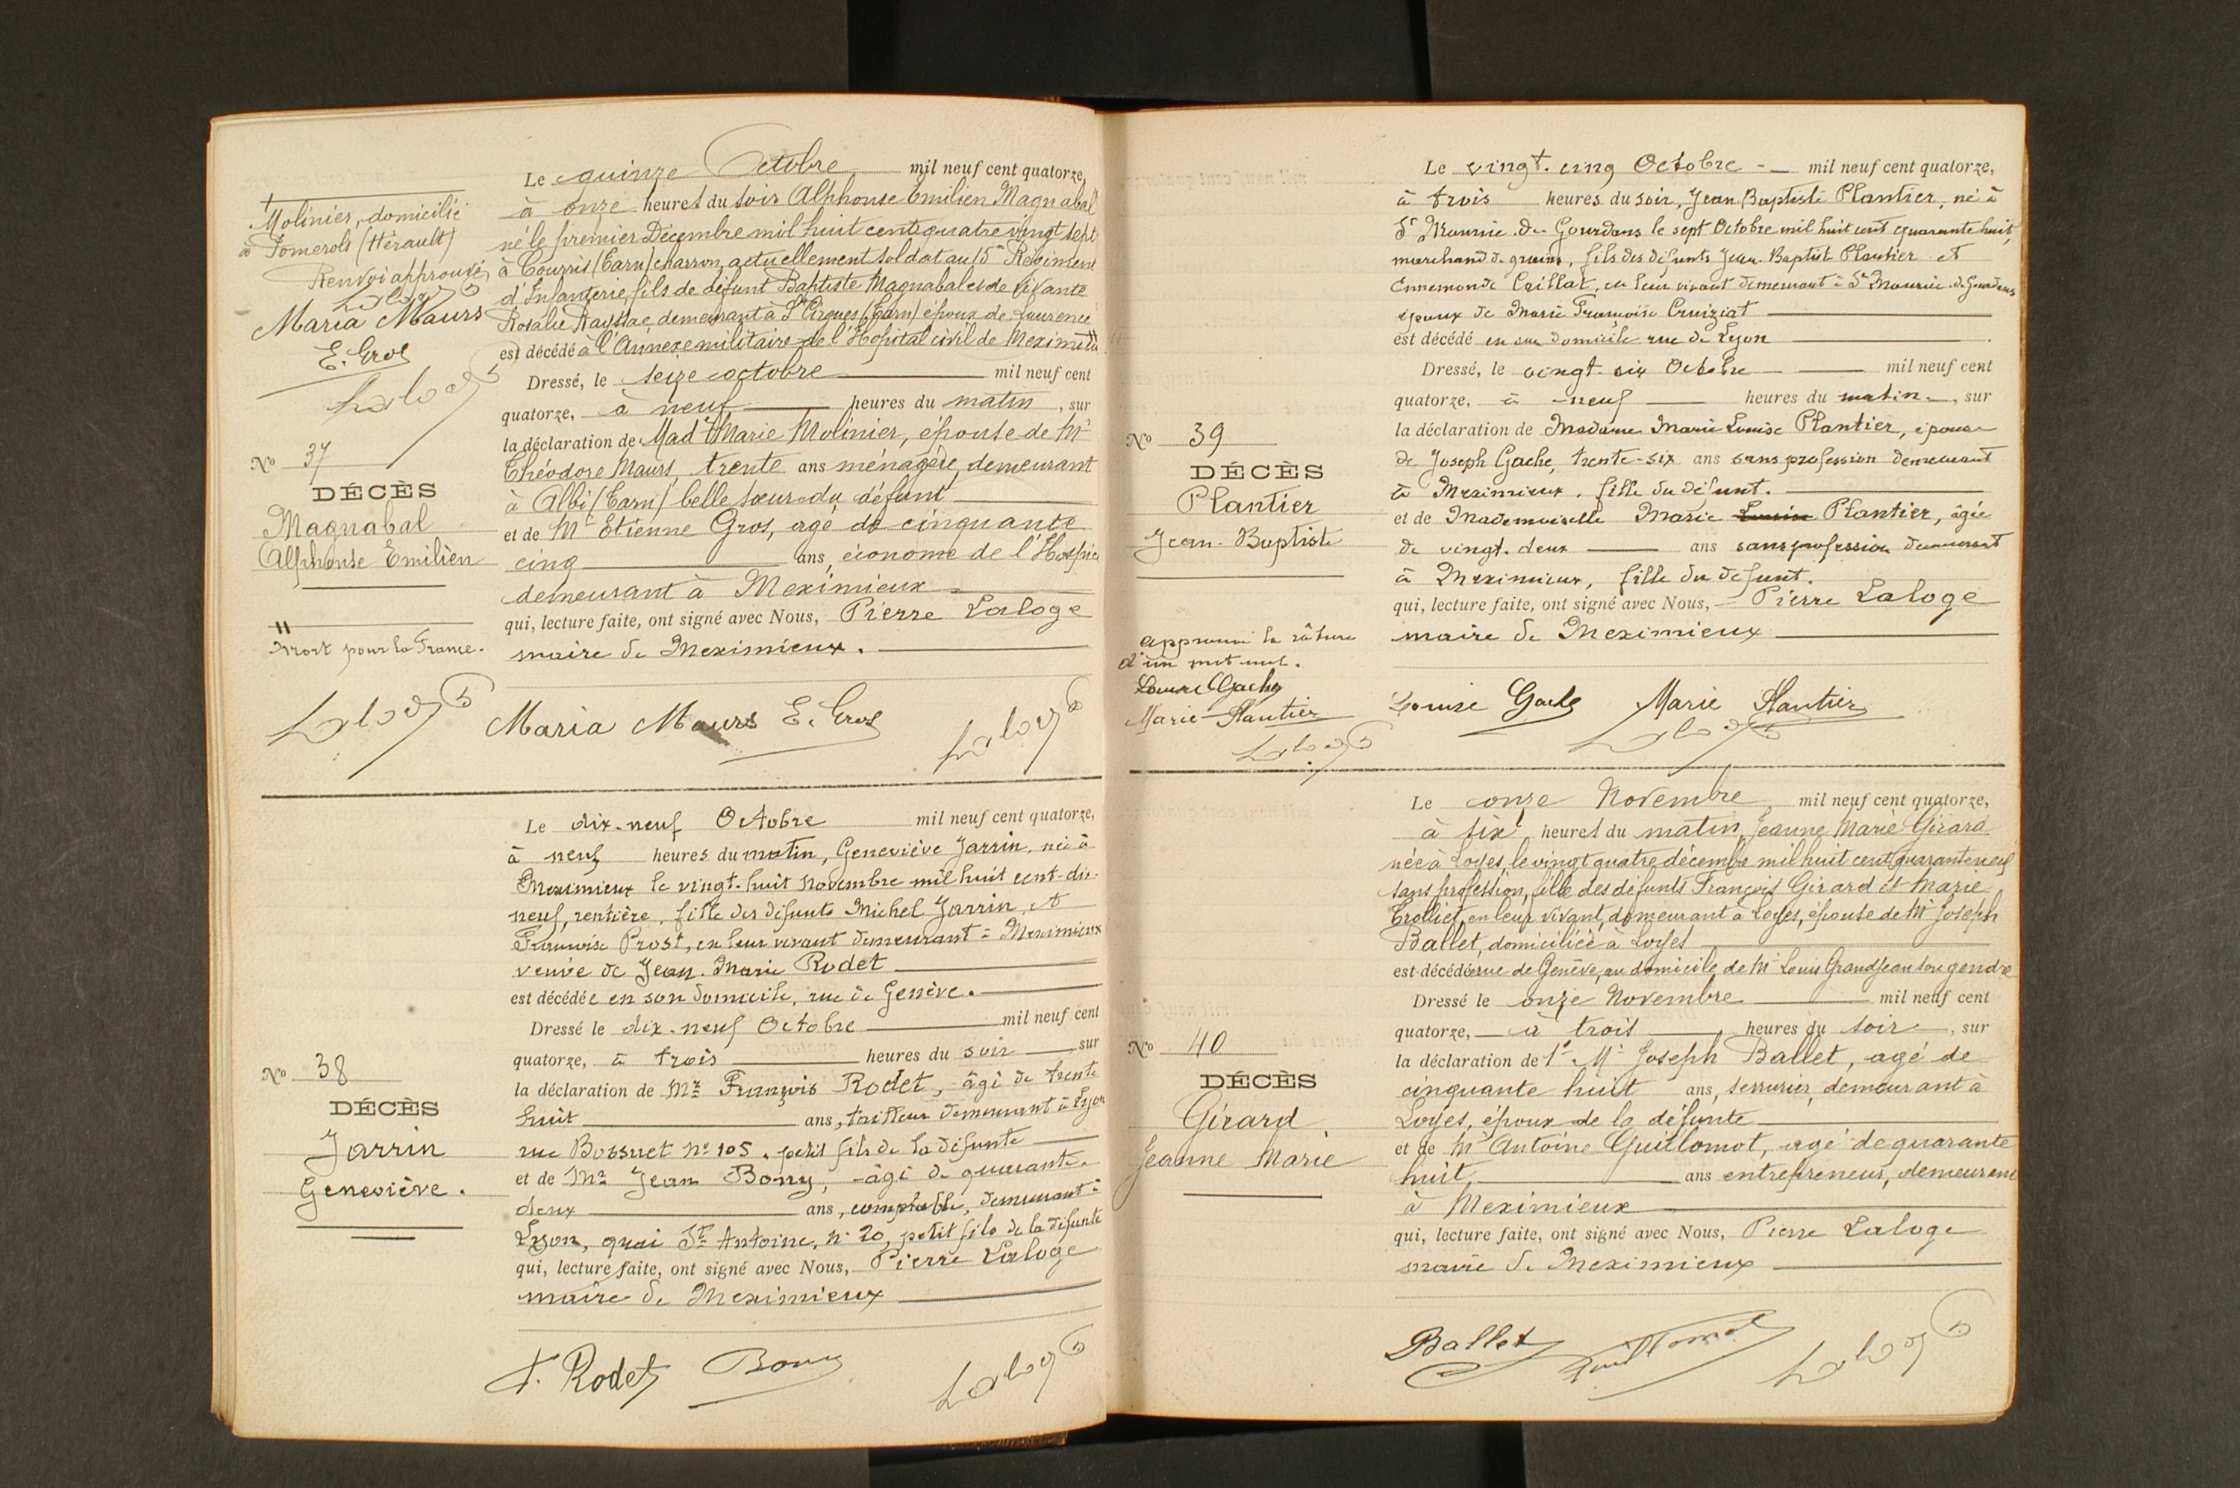 Molinier, domicilié
à Pomerols (Hérault)
Renvoi approuvé
Laloge
Maria Maurs
E. Gros
Laloge
No 37
DÉCÈS
Magnabal
Alphonse Emilien
"
Mort pour la France.
Laloge
Le quinze Octobre mil neuf cent quatorze,
à onze heures du soir Alphonse Emilien Magnabal
né le premier Décembre mil huit cent quatre vingt sept
à Courris (Tarn) charron, actuellement soldat au 15e Régiment
d'Infanterie, fils de défunt Baptiste Magnabal et de vivante
Rosalie Rayssac, demeurant à St Cirgues (Tarn) époux de Laurence
est décédé à l'Annexe militaire de l'Hôpital civil de Meximieux "
Dressé, le seize octobre mil neuf cent
quatorze, à neuf heures du matin, sur
la déclaration de Made Marie Molinier, épouse de Mr
Théodore Maurs, trente ans ménagère, demeurant
à Albi (Tarn) belle sœur du défunt
et de Mr Etienne Gros, agé de cinquante
cinq ans, économe de l'Hospice
demeurant à Meximieux
qui, lecture faite, ont signé avec Nous, Pierre Laloge
maire de Meximieux.
Maria Maurs E. Gros Laloge
No 38
DÉCÈS
Jarrin
Geneviève.
Le dix-neuf Octobre mil neuf cent quatorze,
à neuf heures du matin, Geneviève Jarrin, née à
Meximieux le vingt-huit Novembre mil huit cent-dix-
neuf, rentière, fille des défunts Michel Jarrin et
Françoise Prost, en leur vivant demeurant à Meximieux
veuve de Jean-Marie Rodet
est décédée en son domicile, rue de Genève.
Dressé le dix-neuf Octobre mil neuf cent
quatorze, à trois heures du soir, sur
la déclaration de Mr François Rodet, âgé de trente
huit ans, tailleur demeurant à Lyon
rue Bossuet No 105, petit fils de la défunte
et de Mr Jean Bony, âgé de quarante-
deux ans, comptable, demeurant à
Lyon, quai St Antoine, No 20, petit fils de la défunte
qui, lecture faite, ont signé avec Nous, Pierre Laloge
maire de Meximieux
F. Rodet Bony Laloge
No 39
DÉCÈS
Plantier
Jean-Baptiste
Approuvé la râture
d'un mot nul.
Louise Gache
Marie Plantier
Laloge
Le vingt-cinq Octobre mil neuf cent quatorze,
à trois heures du soir, Jean Baptiste Plantier, né à
St Maurice-de-Gourdans le sept Octobre mil huit cent quarante huit,
marchand de grains, fils des défunts Jean-Baptiste Plantier et
Ennemonde Caillat, en leur vivant demeurant à St Maurice-de-Gourdans
époux de Marie Françoise Cruiziat
est décédé en son domicile rue de Lyon
Dressé, le vingt-six Octobre mil neuf cent
quatorze, à neuf heures du matin, sur
la déclaration de Madame Marie Louise Plantier, épouse
de Joseph Gache, trente-six ans sans profession demeurant
à Meximieux, fille du défunt.
et de Mademoiselle Marie Louise Plantier, âgée
de vingt-deux ans sans profession demeurant
à Meximieux, fille du défunt.
qui, lecture faite, ont signé avec Nous, Pierre Laloge
maire de Meximieux
Louise Gache Marie Plantier
Laloge
No 40
DÉCÈS
Girard
Jeanne Marie
Le onze Novembre, mil neuf cent quatorze,
à six heures du matin, Jeanne Marie Girard
née à Loyes, le vingt quatre décembre mil huit cent quarante neuf
sans profession, fille des défunts François Girard et Marie
Trolliet, en leur vivant, demeurant à Loyes, épouse de Mr Joseph
Ballet, domiciliée à Loyes
est décédée rue de Genève, au domicile de Mr Louis Grandjean son gendre
Dressé le onze Novembre mil neuf cent
quatorze, à trois heures du soir, sur
la déclaration de 1º Mr Joseph Ballet, agé de
cinquante huit ans, serrurier, demeurant à
Loyes, époux de la défunte
et de Mr Antoine Guillomot, agé de quarante
huit, ans entrepreneur, demeurant
à Meximieux
qui, lecture faite, ont signé avec Nous, Pierre Laloge
maire de Meximieux
Ballet Guillomot Laloge